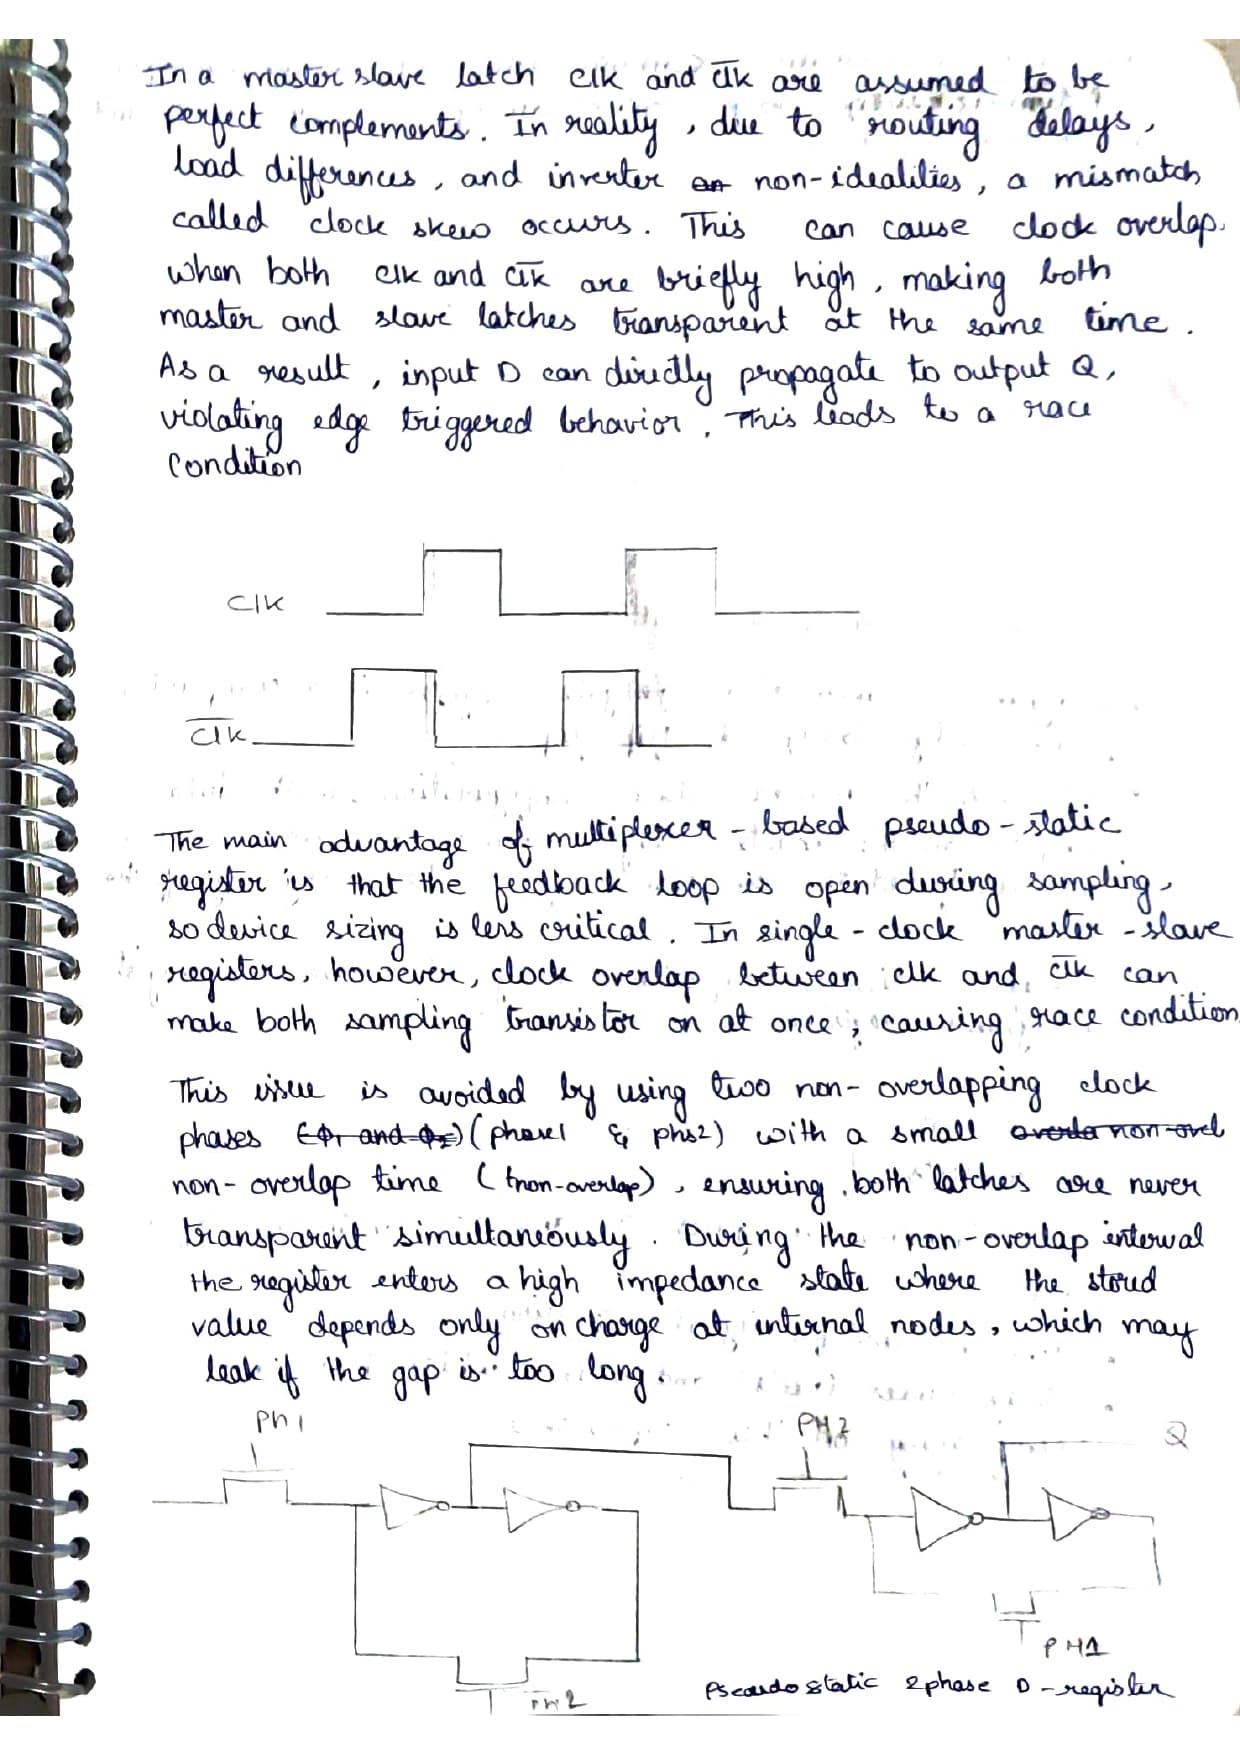 In a master slave latch clk and c̅l̅k̅ are assumed to be
perfect complements. In reality, due to routing delays,
load differences, and inverter non-idealities, a mismatch
called clock skew occurs. This can cause clock overlap.
when both clk and c̅l̅k̅ are briefly high, making both
master and slave latches transparent at the same time.
As a result, input D can directly propagate to output Q,
violating edge triggered behavior. This leads to a race
condition
Clk
C̅l̅k̅
The main advantage of multiplexer-based pseudo-static
register is that the feedback loop is open during sampling,
so device sizing is less critical. In single-clock master-slave
registers, however, clock overlap between clk and c̅l̅k̅ can
make both sampling transistor on at once, causing race condition
This issue is avoided by using two non-overlapping clock
phases (ϕ1 and ϕ2) (phase1 & phs2) with a small non-ovel
non-overlap time (tnon-overlap), ensuring both latches are never
transparent simultaneously. During the non-overlap interval
the register enters a high impedance state where the stored
value depends only on charge at internal nodes, which may
leak if the gap is too long.
Ph1
PH2
Q
PH1
PH2
Pseudo static 2phase D-register